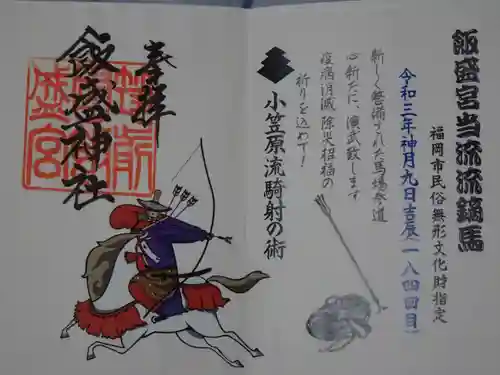 飯盛宮当流流鏑馬
福岡市民俗無形文化財指定
令和三年神月九日吉辰
新しく整備された馬場参道
心新たに、演武致します
疫病消滅 除災招福の
祈りを込めて!
小笠原流騎射の術
奉拝
飯盛神社
筑前
盛宮